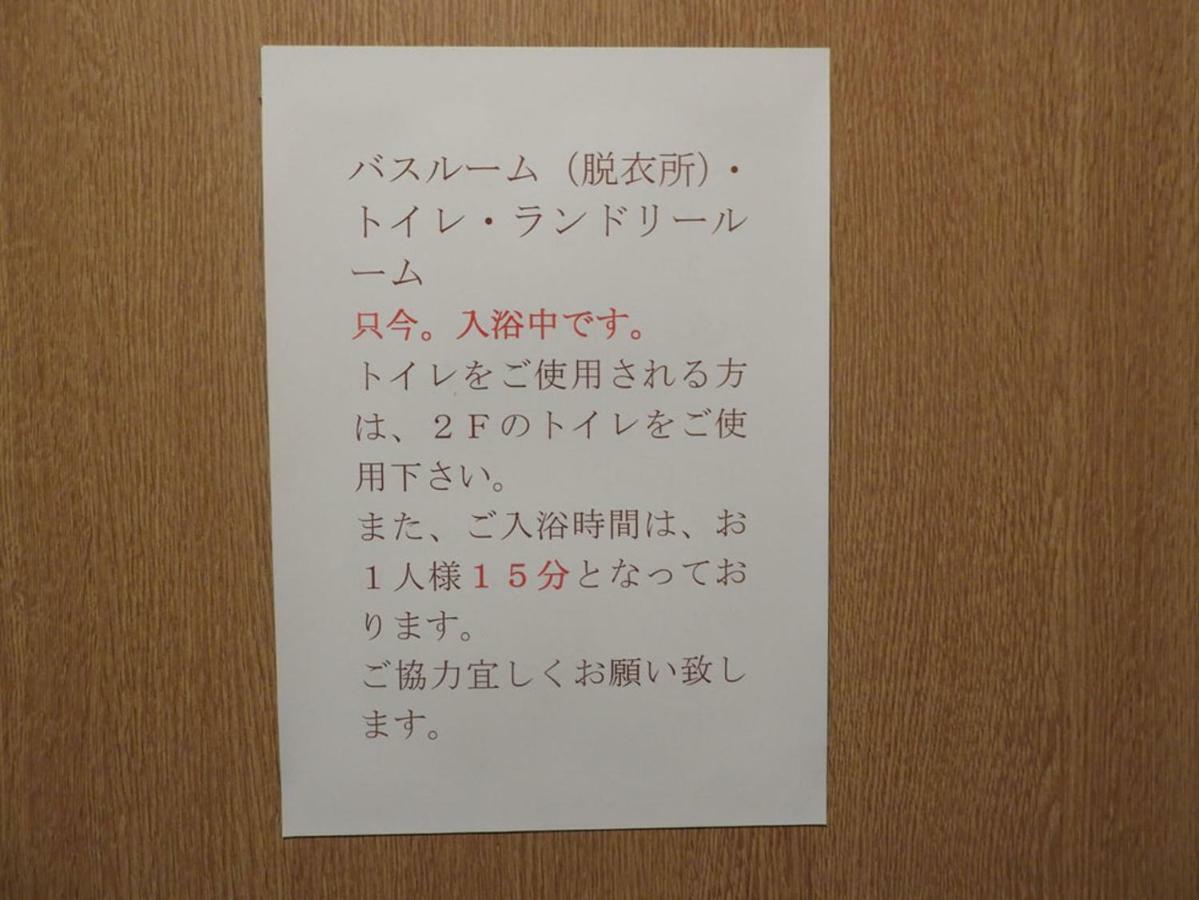 バスルーム（脱衣所）・
トイレ・ランドリール
ーム
只今。入浴中です。
トイレをご使用される方
は、２Ｆのトイレをご使
用下さい。
また、ご入浴時間は、お
１人様１５分となってお
ります。
ご協力宜しくお願い致し
ます。